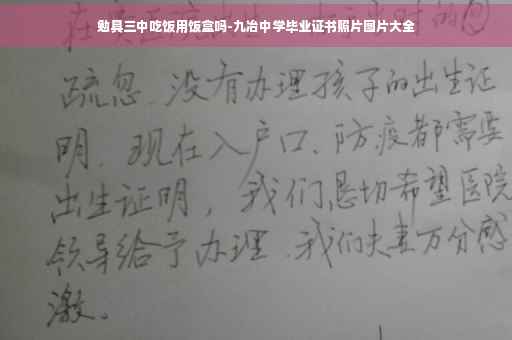 勉县三中吃饭用饭盒吗-九冶中学毕业证书照片图片大全
疏忽、没有办理孩子的出生证
明、现在入户口、防疫都需要
出生证明，我们恳切希望医院
领导给予办理、我们夫妻万分感
激。